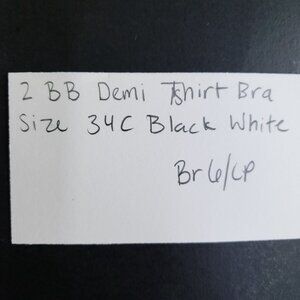 2 BB Demi Tshirt Bra
Size 34C Black White
Br6/LP